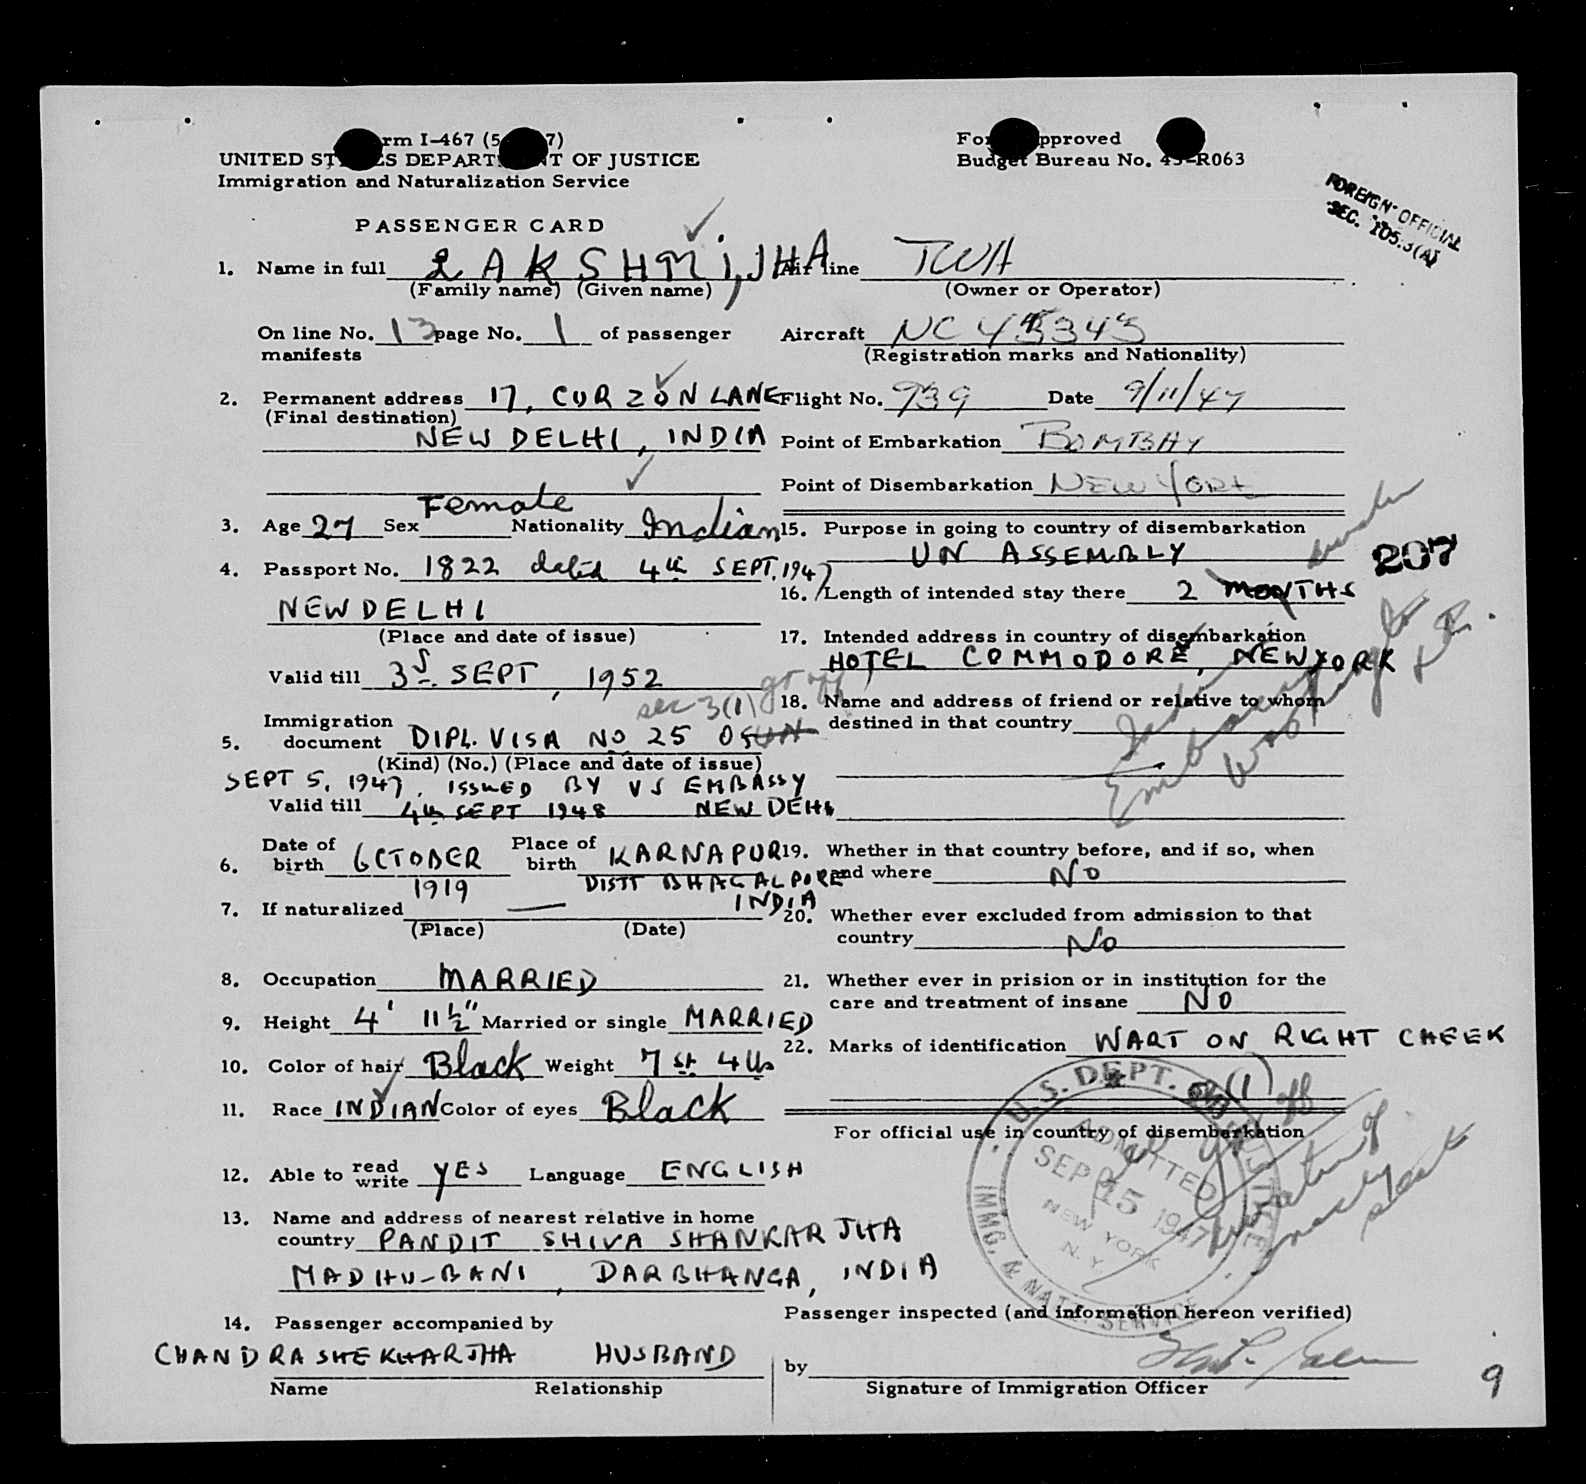 rm I-467 (5 7)
UNITED ST S DEPART T OF JUSTICE
Immigration and Naturalization Service
For pproved
Budget Bureau No. 43-R063
FOREIGN OFFICIAL
SEC. 105.3(A)
PASSENGER CARD
1. Name in full LAKSHMI, JHA
(Family name) (Given name)
Air line TWA
(Owner or Operator)
On line No. 13 page No. 1 of passenger
manifests
Aircraft NC 45343
(Registration marks and Nationality)
2. Permanent address 17, CURZON LANE
(Final destination)
NEW DELHI, INDIA
Flight No. 939 Date 9/11/47
Point of Embarkation BOMBAY
Point of Disembarkation NEW YORK
3. Age 27 Sex Female Nationality Indian
4. Passport No. 1822 dated 4th SEPT. 1947
NEW DELHI
(Place and date of issue)
Valid till 3 SEPT, 1952
sec 3(1)
5. Immigration
document DIPL. VISA NO 25 OF
(Kind) (No.) (Place and date of issue)
SEPT 5, 1947, ISSUED BY US EMBASSY
Valid till 4th SEPT 1948 NEW DEHI
6. Date of birth OCTOBER 1919 Place of birth KARNAPUR
DISTT BHAGALPORE
INDIA
7. If naturalized —
(Place) (Date)
8. Occupation MARRIED
9. Height 4' 11½" Married or single MARRIED
10. Color of hair Black Weight 7 st 4 lbs
11. Race INDIAN Color of eyes Black
12. Able to read write YES Language ENGLISH
13. Name and address of nearest relative in home
country PANDIT SHIVA SHANKAR JHA
MADHU-BANI, DARBHANGA, INDIA
14. Passenger accompanied by
CHANDRASHEKHAR JHA HUSBAND
Name Relationship
15. Purpose in going to country of disembarkation
UN ASSEMBLY
207
16. Length of intended stay there 2 MONTHS
17. Intended address in country of disembarkation
HOTEL COMMODORE, NEW YORK
18. Name and address of friend or relative to whom
destined in that country
Indian
Embassy
Washington
19. Whether in that country before, and if so, when
and where No
20. Whether ever excluded from admission to that
country No
21. Whether ever in prision or in institution for the
care and treatment of insane NO
22. Marks of identification WART ON RIGHT CHEEK
3(1)
For official use in country of disembarkation
U.S. DEPT. OF JUSTICE
ADMITTED
SEP 15 1947
NEW YORK
N.Y.
IMMG. & NATZ. SERVICE
Passenger inspected (and information hereon verified)
by
Signature of Immigration Officer
9